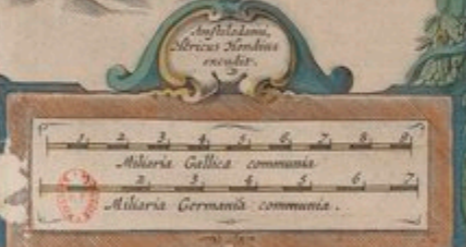 Amstelodami,
Henricus Hondius
excudit.
1 2 3 4 5 6 7 8 9
Miliaria Gallica communia
2 3 4 5 6 7
Miliaria Germanica communia.